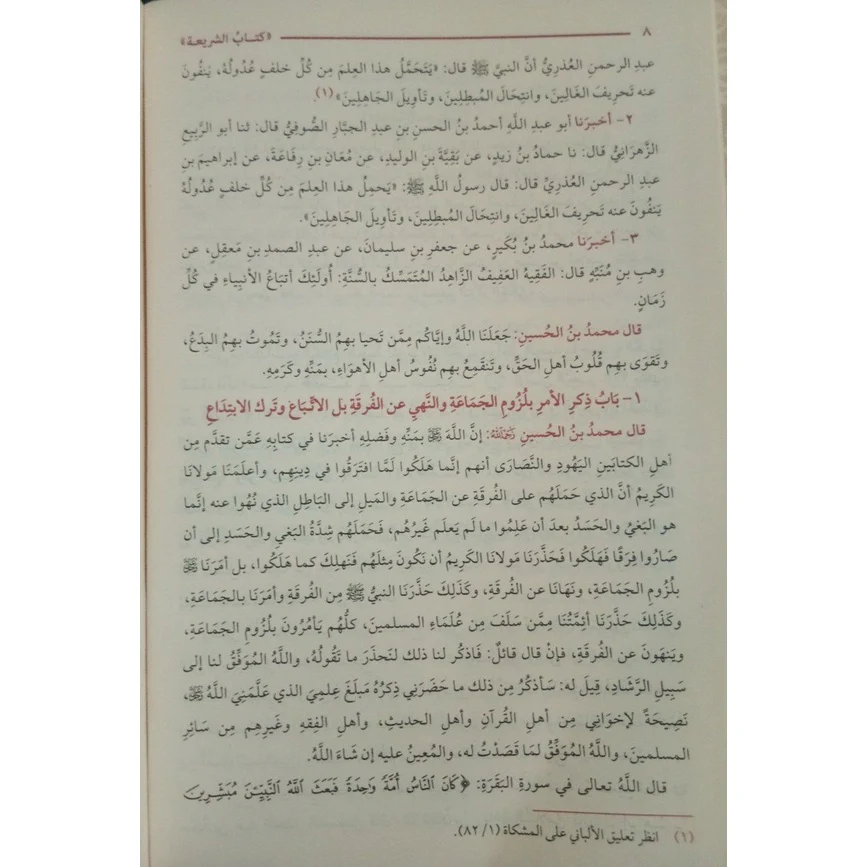 ٨ «كتاب الشريعة»
عبدِ الرحمنِ العُذريُّ أنَّ النبيَّ ﷺ قال: «يَتَحَمَّلُ هذا العِلمَ مِن كُلِّ خلفٍ عُدُولُهُ، يَنفُونَ
عنه تَحرِيفَ الغَالِينَ، وانتِحَالَ المُبطِلِينَ، وتَأوِيلَ الجَاهِلِينَ»(١).
٢- أخبرَنا أبو عبدِ اللَّهِ أحمدُ بنُ الحسنِ بنِ عبدِ الجبَّارِ الصُّوفِيُّ قال: ثنا أبو الرَّبِيعِ
الزَّهرَانِيُّ قال: نا حمادُ بنُ زيدٍ، عن بَقِيَّةَ بنِ الوليدِ، عن مُعَانِ بنِ رِفَاعَةَ، عن إبراهيمَ بنِ
عبدِ الرحمنِ العُذرِيِّ قال: قال رسولُ اللَّهِ ﷺ: «يَحمِلُ هذا العِلمَ مِن كُلِّ خلفٍ عُدُولُهُ
يَنفُونَ عنه تَحرِيفَ الغَالِينَ، وانتِحَالَ المُبطِلِينَ، وتَأوِيلَ الجَاهِلِينَ».
٣- أخبرَنا محمدُ بنُ بُكَيرٍ، عن جعفرِ بنِ سليمانَ، عن عبدِ الصمدِ بنِ مَعقِلٍ، عن
وهبِ بنِ مُنَبِّهٍ قال: الفَقِيهُ العَفِيفُ الزَّاهِدُ المُتَمَسِّكُ بالسُّنَّةِ: أُولَئِكَ أتبَاعُ الأنبِيَاءِ في كُلِّ
زَمَانٍ.
قال محمدُ بنُ الحُسينِ: جَعَلَنَا اللَّهُ وإيَّاكُم مِمَّن تَحيا بهِمُ السُّنَنُ، وتَمُوتُ بهِمُ البِدَعُ،
وتَقوَى بهِم قُلُوبُ أهلِ الحَقِّ، وتَنقَمِعُ بهم نُفُوسُ أهلِ الأهوَاءِ، بمَنِّهِ وكَرَمِهِ.
١- بَابُ ذِكرِ الأمرِ بلُزُومِ الجَمَاعَةِ والنَّهيِ عن الفُرقَةِ بل الاتِّبَاعَ وتَرك الابتِدَاعِ
قال محمدُ بنُ الحُسينِ رَحِمَهُ اللَّهُ: إنَّ اللَّهَ ﷻ بمَنِّهِ وفَضلِهِ أخبرَنا في كتابِهِ عَمَّن تقدَّم مِن
أهلِ الكتابَينِ اليَهُودِ والنَّصَارَى أنهم إنَّما هَلَكُوا لَمَّا افتَرَقُوا في دِينِهِم، وأعلَمَنَا مَولانَا
الكَرِيمُ أنَّ الذي حَمَلَهُم على الفُرقَةِ عن الجَمَاعَةِ والمَيلِ إلى البَاطِلِ الذي نُهُوا عنه إنَّما
هو البَغيُ والحَسَدُ بعدَ أن عَلِمُوا ما لَم يَعلَم غَيرُهُم، فَحَمَلَهُم شِدَّةُ البَغيِ والحَسَدِ إلى أن
صَارُوا فِرَقًا فَهَلَكُوا فَحَذَّرَنَا مَولانَا الكَرِيمُ أن نَكُونَ مِثلَهُم فَنَهلِكَ كما هَلَكُوا، بل أمَرَنَا ﷻ
بلُزُومِ الجَمَاعَةِ، ونَهَانَا عن الفُرقَةِ، وكَذَلِكَ حَذَّرَنَا النبيُّ ﷺ مِن الفُرقَةِ وأمَرَنَا بالجَمَاعَةِ،
وكَذَلِكَ حَذَّرَنَا أئِمَّتُنَا مِمَّن سَلَفَ مِن عُلَمَاءِ المسلمينَ، كلُّهُم يَأمُرُونَ بلُزُومِ الجَمَاعَةِ،
ويَنهَونَ عن الفُرقَةِ، فإنْ قال قائلٌ: فَاذكُر لنا ذلك لنَحذَرَ ما تَقُولُهُ، واللَّهُ المُوَفِّقُ لنا إلى
سَبِيلِ الرَّشَادِ، قِيلَ له: سَأذكُرُ مِن ذلك ما حَضَرَنِي ذِكرُهُ مَبلَغَ عِلمِيَ الذي عَلَّمَنِيَ اللَّهُ ﷻ،
نَصِيحَةً لإخوَانِي مِن أهلِ القُرآنِ وأهلِ الحديثِ، وأهلِ الفِقهِ وغَيرِهِم مِن سَائِرِ
المسلمينَ، واللَّهُ المُوَفِّقُ لمَا قَصَدْتُ له، والمُعِينُ عليه إن شَاءَ اللَّهُ.
قال اللَّهُ تعالى في سورةِ البَقَرَةِ: ﴿كَانَ ٱلنَّاسُ أُمَّةً وَٰحِدَةً فَبَعَثَ ٱللَّهُ ٱلنَّبِيِّـۧنَ مُبَشِّرِينَ
(١) انظر تعليق الألباني على المشكاة (١/ ٨٢).